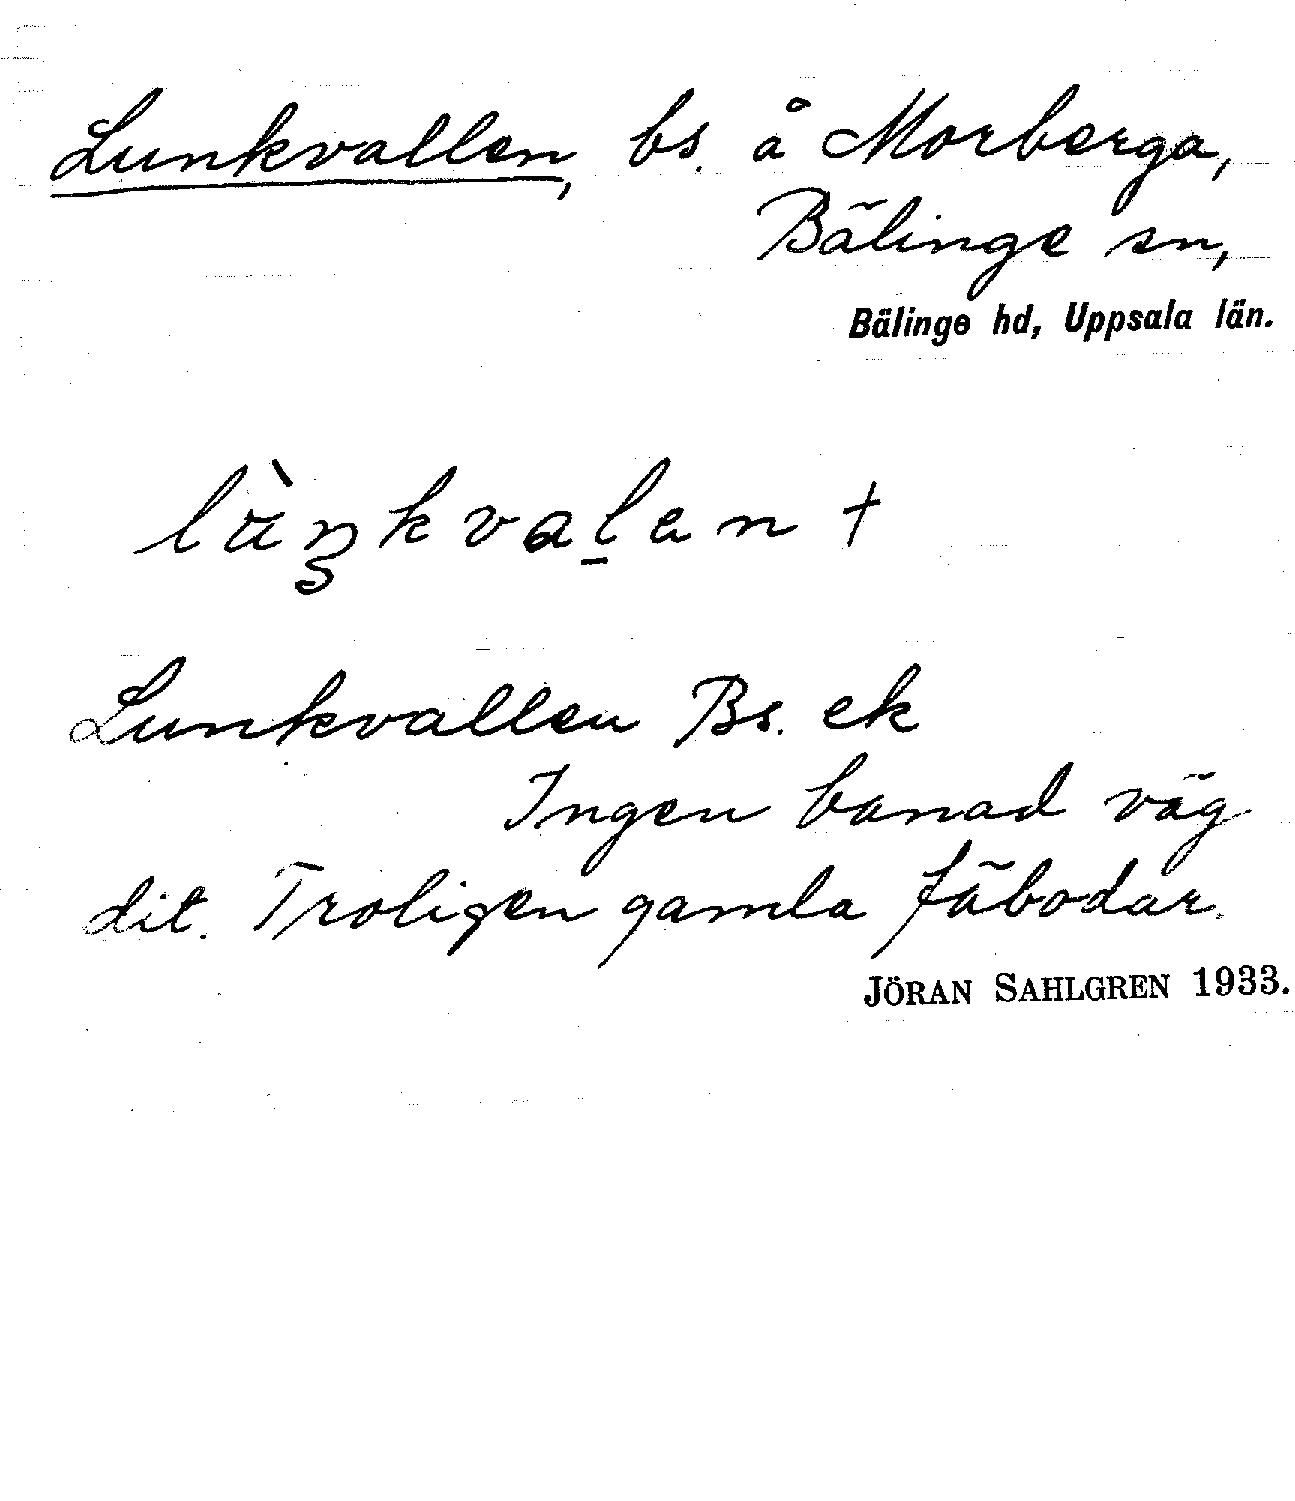 Lunkvallen, bs. å Morberga,
Bälinge sn,
Bälinge hd, Uppsala län.
Lunkvallen Bs. ek
Ingen banad väg
dit. Troligen gamla fäbodar.
JÖRAN SAHLGREN 1933.